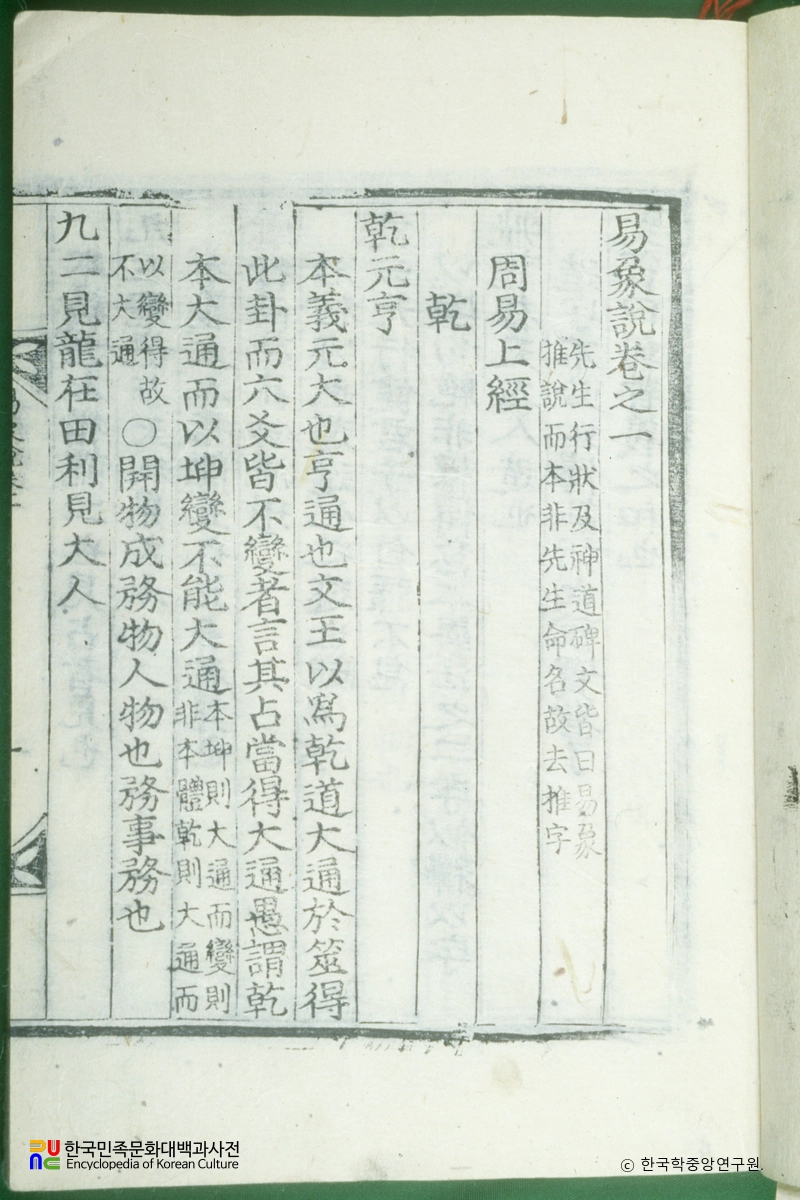 易象說卷之一
先生行狀及神道碑文皆曰易象
推說而本非先生命名故去推字
周易上經
乾
乾元亨
本義元大也亨通也文王以為乾道大通於筮得
此卦而六爻皆不變者言其占當得大通愚謂乾
本大通而以坤變不能大通本坤則大通而變則
非本體乾則大通而
以變得故
不大通
○開物成務物人物也務事務也
九二見龍在田利見大人
한국민족문화대백과사전
Encyclopedia of Korean Culture
© 한국학중앙연구원